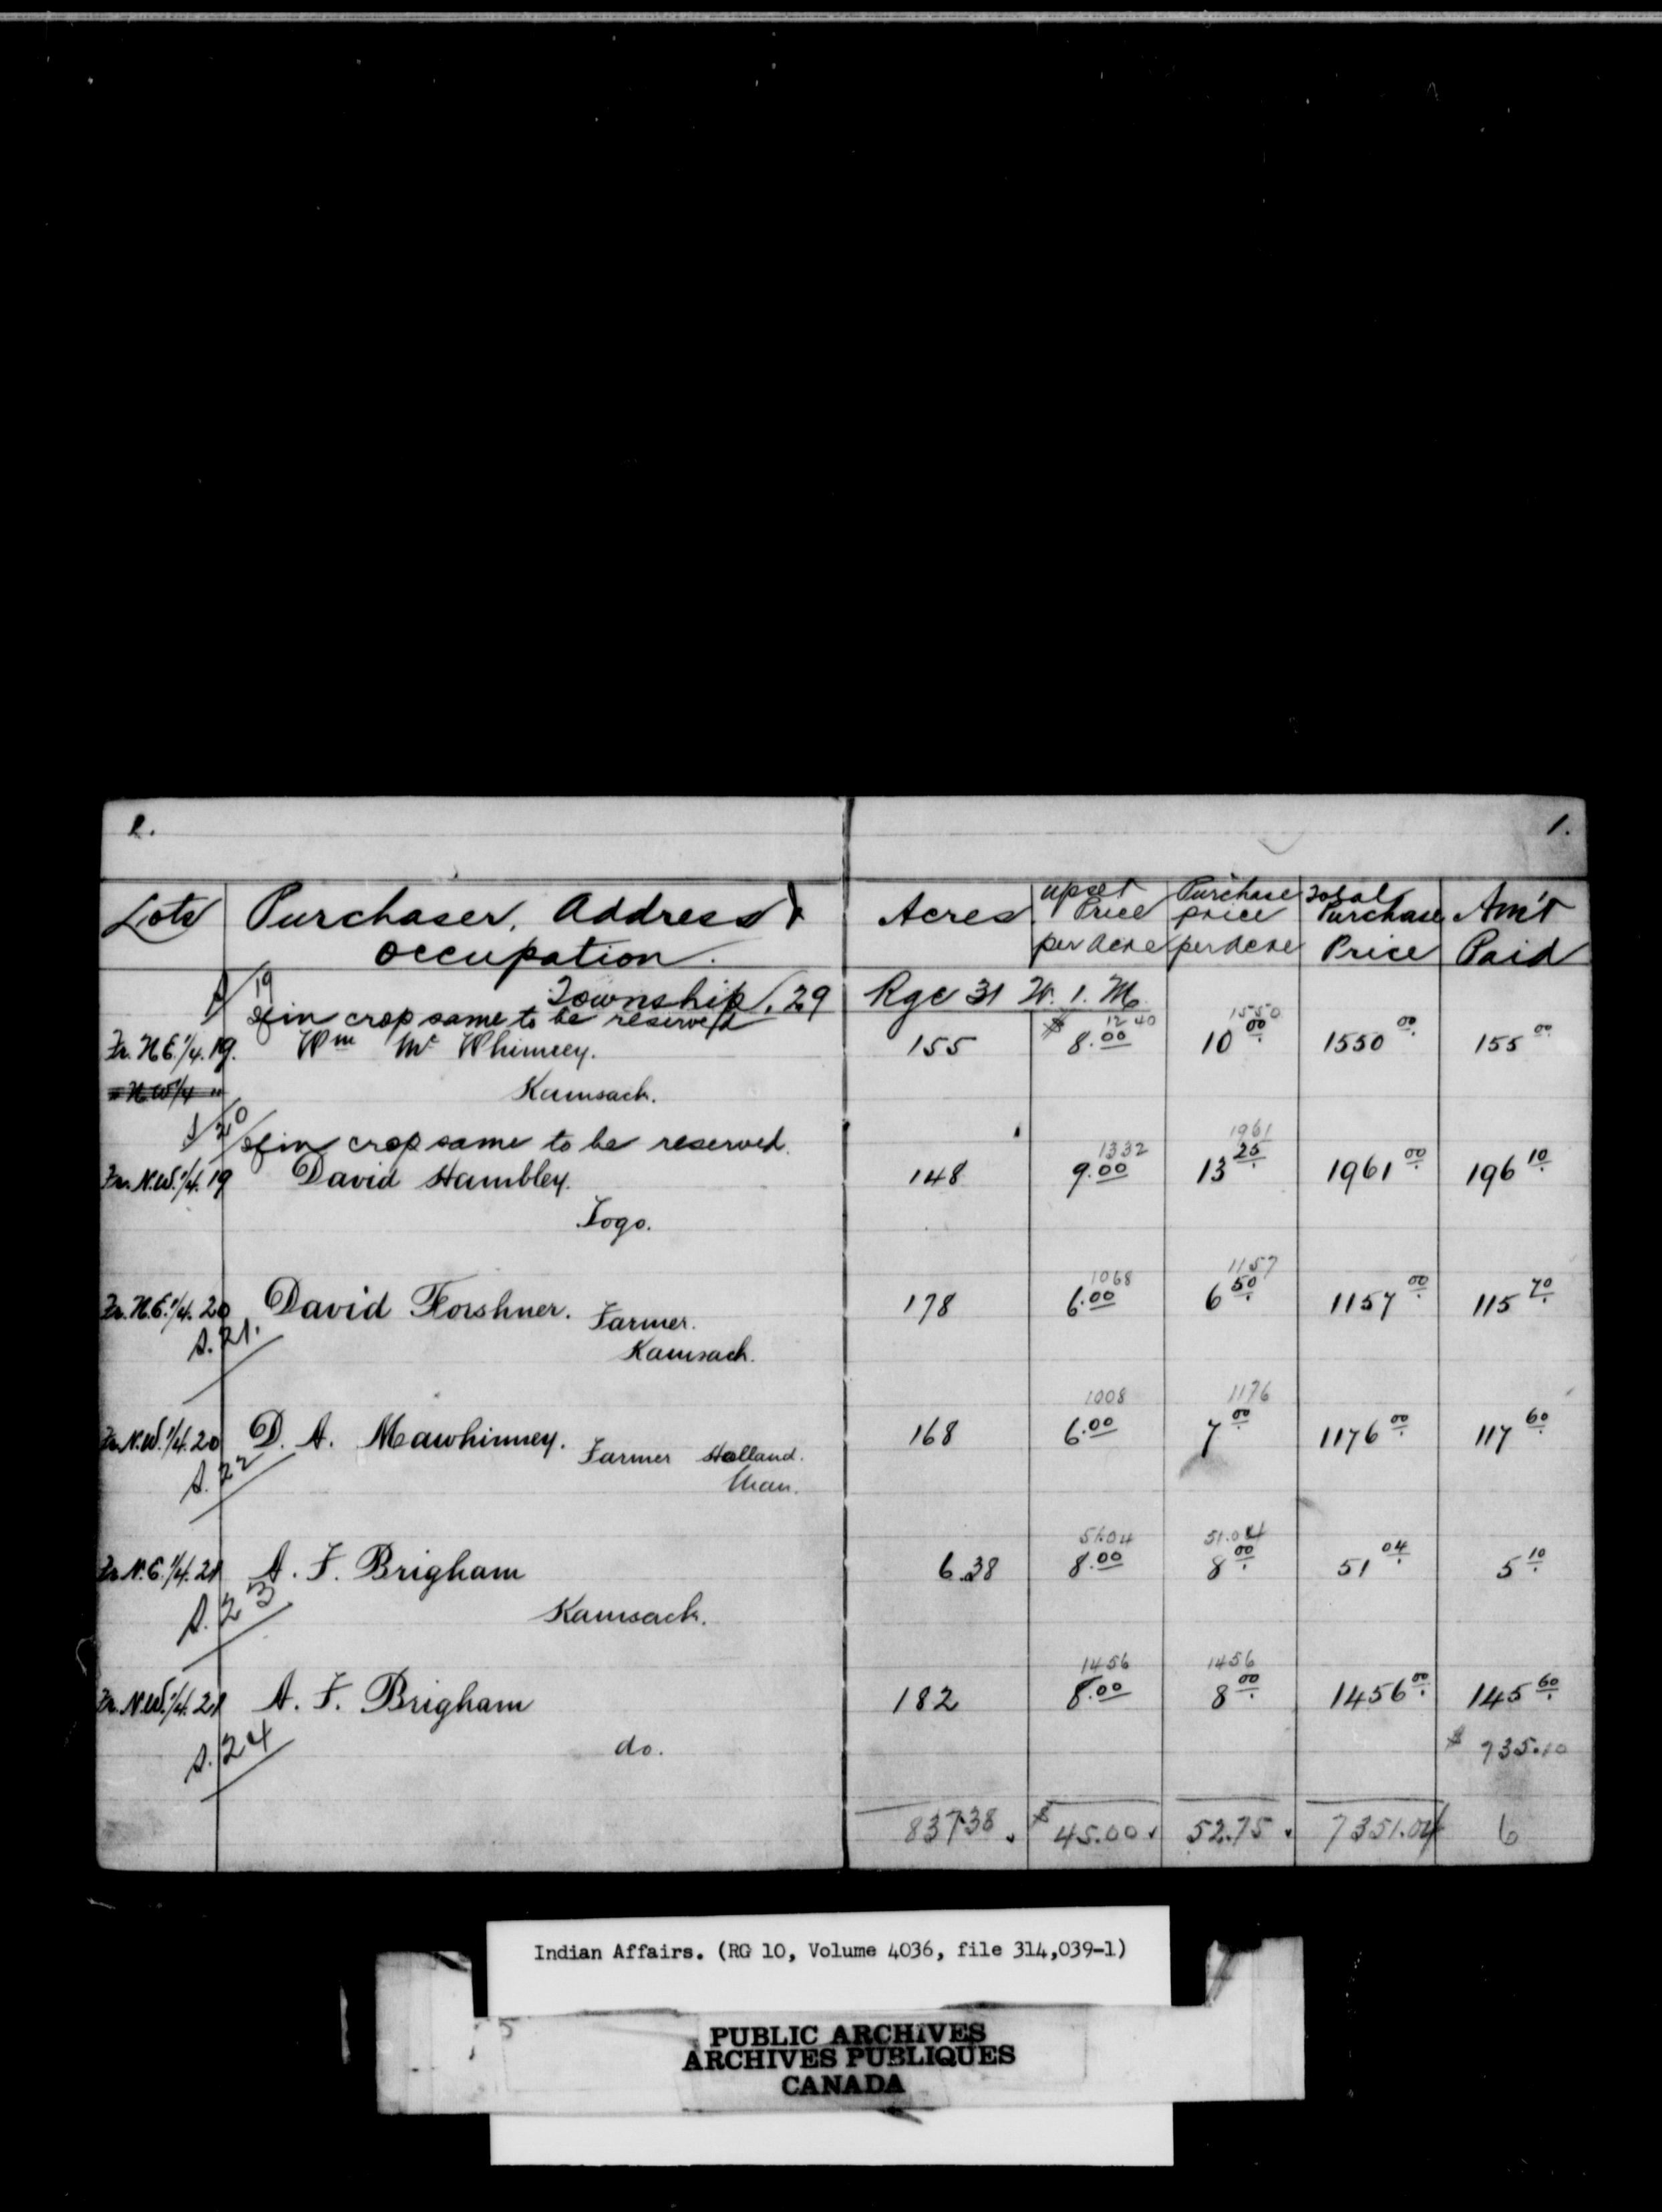 1. 1.
Lots Purchaser, Address & Acres upset Price per Acre Purchase price per Acre Total Purchase Price Am't Paid
occupation.
S/19 Township, 29 Rge 31 W. 1. M.
If in crop same to be reserved 12 40 1550
Fr. N E. 1/4. 19. Wm Mc Whinney. 155 $ 8.00 10 00 1550 00 155 00
" N W 1/4 " Kamsack.
S/20 If in crop same to be reserved. 1332 1961
Fr. N.W. 1/4. 19 David Hambley. 148 9.00 13 25 1961 00 196 10
Togo.
1068 1157
Fr. N.E. 1/4. 20 David Forshner. Farmer. 178 6.00 6 50 1157 00 115 70
S. 21. Kamsack.
1008 1176
Fr. N.W. 1/4. 20 D. A. Mawhinney. Farmer Holland. 168 6.00 7 00 1176 00 117 60
S. 22 Man.
51.04 51.04
Fr. N.E. 1/4. 21 A. F. Brigham 6.38 8.00 8 00 51 04 5 10
S. 23 Kamsack.
1456 1456
Fr. N.W. 1/4. 21 A. F. Brigham 182 8.00 8 00 1456 00 145 60
S. 24 do. $ 735.10
837.38 $ 45.00 52.75 7351.04 6
Indian Affairs. (RG 10, Volume 4036, file 314,039-1)
PUBLIC ARCHIVES
ARCHIVES PUBLIQUES
CANADA